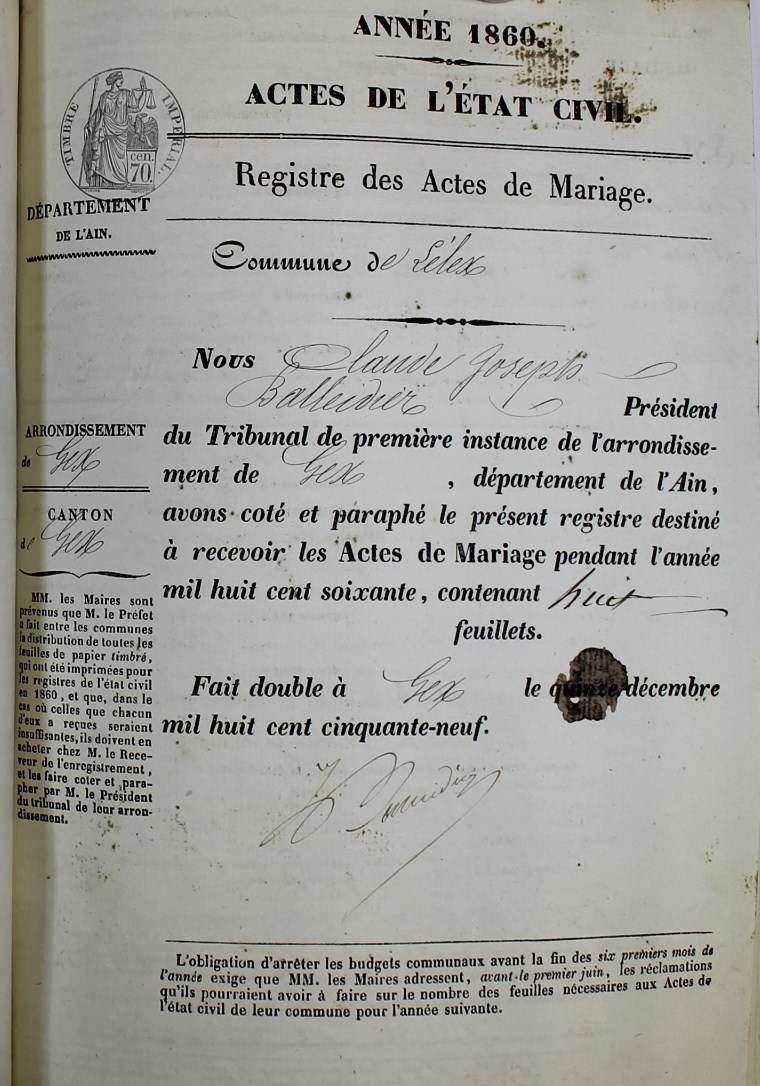 ANNÉE 1860.
ACTES DE L'ÉTAT CIVIL.
TIMBRE IMPÉRIAL.
cen.
70.
Registre des Actes de Mariage.
DÉPARTEMENT
DE L'AIN.
Commune de Lélex
Nous Claude Joseph
Balleidier
Président
du Tribunal de première instance de l'arrondisse-
ment de Gex, département de l'Ain,
avons coté et paraphé le présent registre destiné
à recevoir les Actes de Mariage pendant l'année
mil huit cent soixante, contenant huit
feuillets.
Fait double à Gex le quinze décembre
mil huit cent cinquante-neuf.
ARRONDISSEMENT
de Gex
CANTON
de Gex
MM. les Maires sont
prévenus que M. le Préfet
a fait entre les communes
la distribution de toutes les
feuilles de papier timbré,
qui ont été imprimées pour
les registres de l'état civil
en 1860, et que, dans le
cas où celles que chacun
d'eux a reçues seraient
insuffisantes, ils doivent en
acheter chez M. le Rece-
veur de l'enregistrement,
et les faire coter et para-
pher par M. le Président
du tribunal de leur arron-
dissement.
L'obligation d'arrêter les budgets communaux avant la fin des six premiers mois de
l'année exige que MM. les Maires adressent, avant le premier juin, les réclamations
qu'ils pourraient avoir à faire sur le nombre des feuilles nécessaires aux Actes de
l'état civil de leur commune pour l'année suivante.